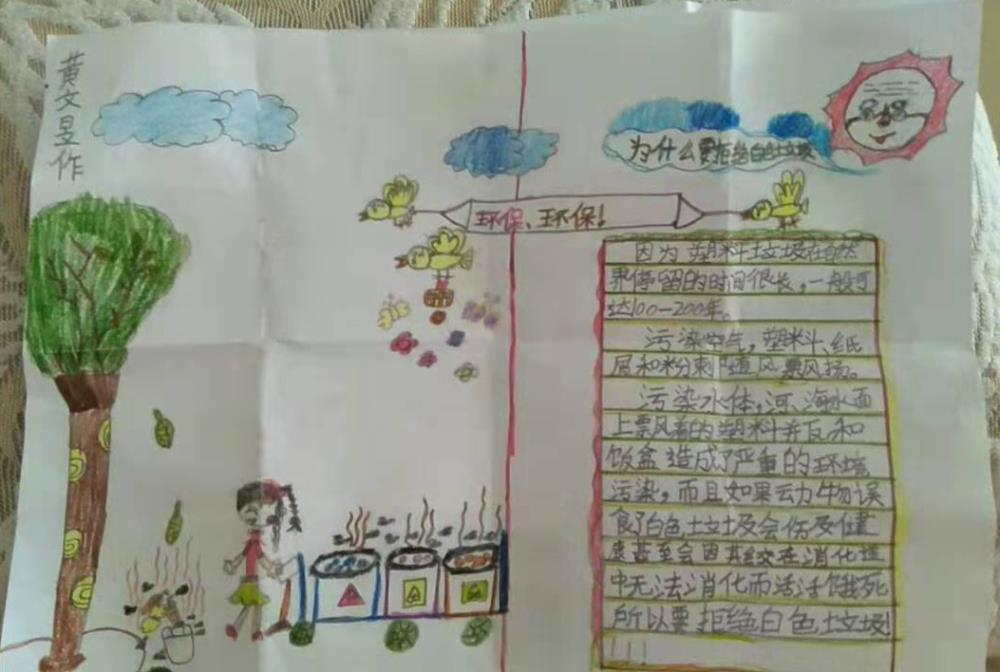 黄文昱作
为什么要拒绝白色垃圾
环保、环保!
因为塑料垃圾在自然
界停留的时间很长,一般可
达100-200年。
污染空气,塑料、纸
屑和粉刺随风票风扬。
污染水体,河、海水面
上票风着的塑料并瓦和
饭盒造成了严重的环境
污染,而且如果动物误
食了白色垃圾会伤及健
康甚至会因其绞在消化道
中无法消化而活活饿死
所以要拒绝白色垃圾!
!!!